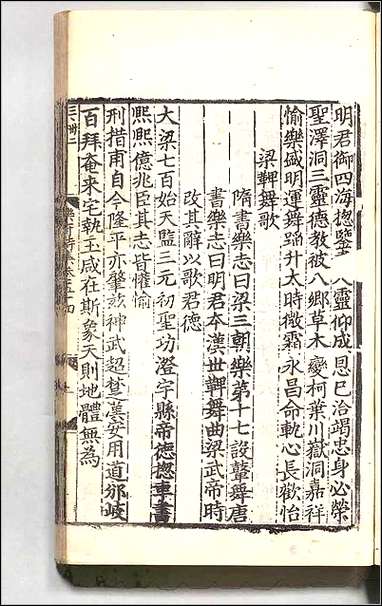 明君御四海揔鑒 人靈仰成恩已洽竭忠身必榮
聖澤洞三靈德敎被八鄉草木變柯葉川嶽洞嘉祥
愉樂盛明運舞蹈升太時微霜永昌命軌心長歡怡
梁鞞舞歌
隋書樂志曰梁三朝樂第十七設鞞舞唐
書樂志曰明君本漢世鞞舞曲梁武帝時
改其辭以歌君德
大梁七百始天監三元初聖功澄宇縣帝德揔車書
熙熙億兆臣其志皆懽愉
刑措甫自今隆平亦肇兹神武超楚漢安用道邠岐
百拜奄來宅執玉咸在斯象天則地體無為
樂府詩集卷五十四